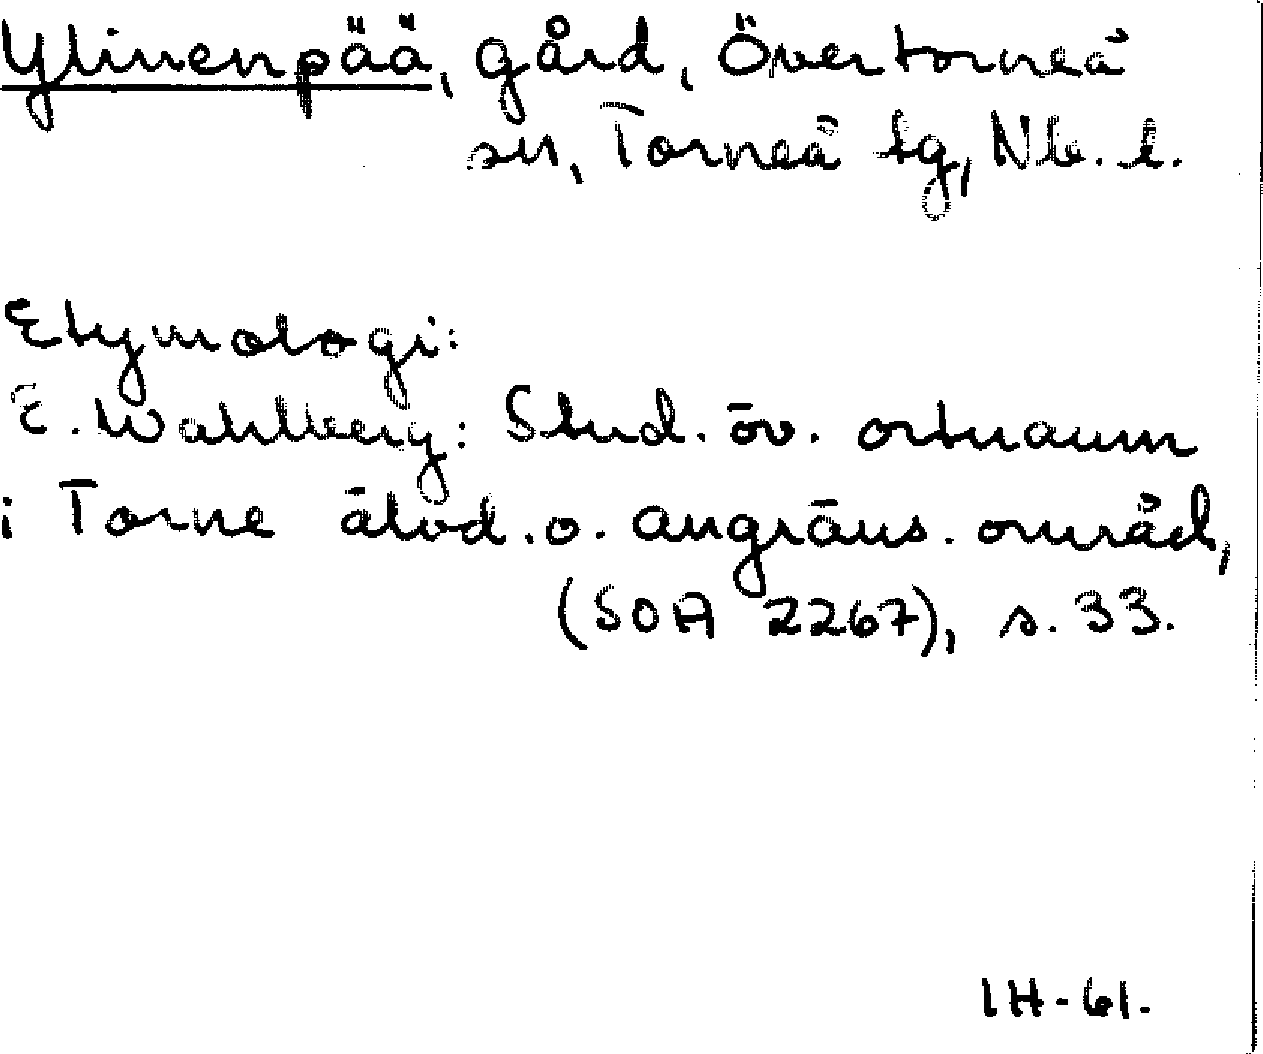 Ylinenpää, gård, Övertorneå
sn, Torneå tg, Nb. l.
Etymologi:
E. Wahlberg: Stud. öv. ortnamn
i Torne älvd. o. angräns. områd,
(SOA 2267), s. 33.
IH-61.